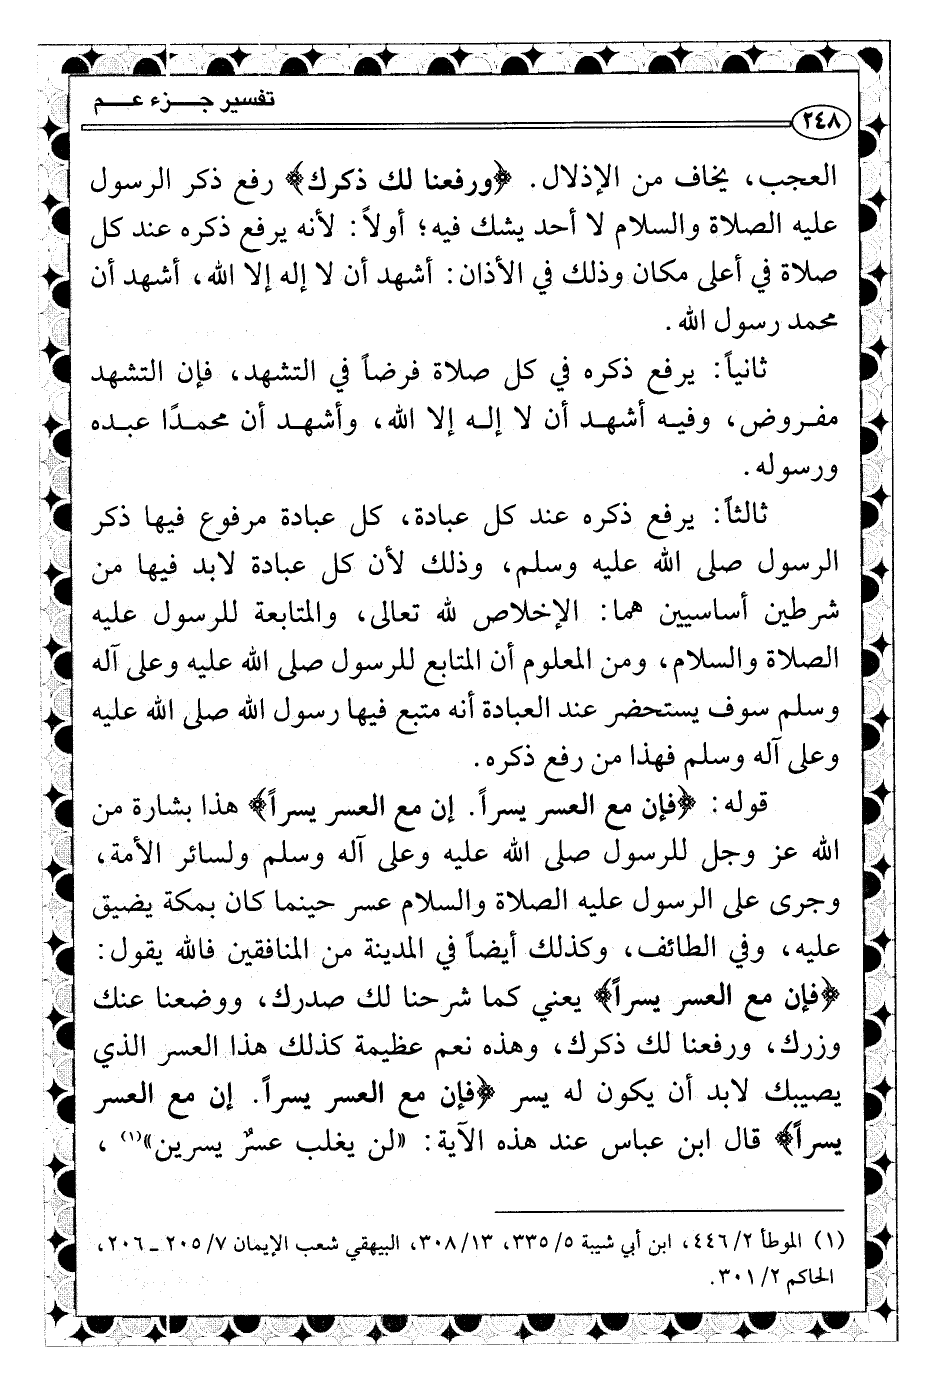 تفسير جـــزء عـــم
٢٤٨
العجب، يخاف من الإذلال. ﴿ورفعنا لك ذكرك﴾ رفع ذكر الرسول
عليه الصلاة والسلام لا أحد يشك فيه؛ أولاً: لأنه يرفع ذكره عند كل
صلاة في أعلى مكان وذلك في الأذان: أشهد أن لا إله إلا الله، أشهد أن
محمد رسول الله.
ثانياً: يرفع ذكره في كل صلاة فرضاً في التشهد، فإن التشهد
مفـروض، وفيـه أشهـد أن لا إلـه إلا الله، وأشهـد أن محمـدًا عبـده
ورسوله.
ثالثاً: يرفع ذكره عند كل عبادة، كل عبادة مرفوع فيها ذكر
الرسول صلى الله عليه وسلم، وذلك لأن كل عبادة لابد فيها من
شرطين أساسيين هما: الإخلاص لله تعالى، والمتابعة للرسول عليه
الصلاة والسلام، ومن المعلوم أن المتابع للرسول صلى الله عليه وعلى آله
وسلم سوف يستحضر عند العبادة أنه متبع فيها رسول الله صلى الله عليه
وعلى آله وسلم فهذا من رفع ذكره.
قوله: ﴿فإن مع العسر يسراً. إن مع العسر يسراً﴾ هذا بشارة من
الله عز وجل للرسول صلى الله عليه وعلى آله وسلم ولسائر الأمة،
وجرى على الرسول عليه الصلاة والسلام عسر حينما كان بمكة يضيق
عليه، وفي الطائف، وكذلك أيضاً في المدينة من المنافقين فالله يقول:
﴿فإن مع العسر يسراً﴾ يعني كما شرحنا لك صدرك، ووضعنا عنك
وزرك، ورفعنا لك ذكرك، وهذه نعم عظيمة كذلك هذا العسر الذي
يصيبك لابد أن يكون له يسر ﴿فإن مع العسر يسراً. إن مع العسر
يسراً﴾ قال ابن عباس عند هذه الآية: «لن يغلب عسرٌ يسرين»(١)،
(١) الموطأ ٤٤٦/٢، ابن أبي شيبة ٣٣٥/٥، ٣٠٨/١٣، البيهقي شعب الإيمان ٢٠٥/٧ ـ ٢٠٦،
الحاكم ٣٠١/٢.